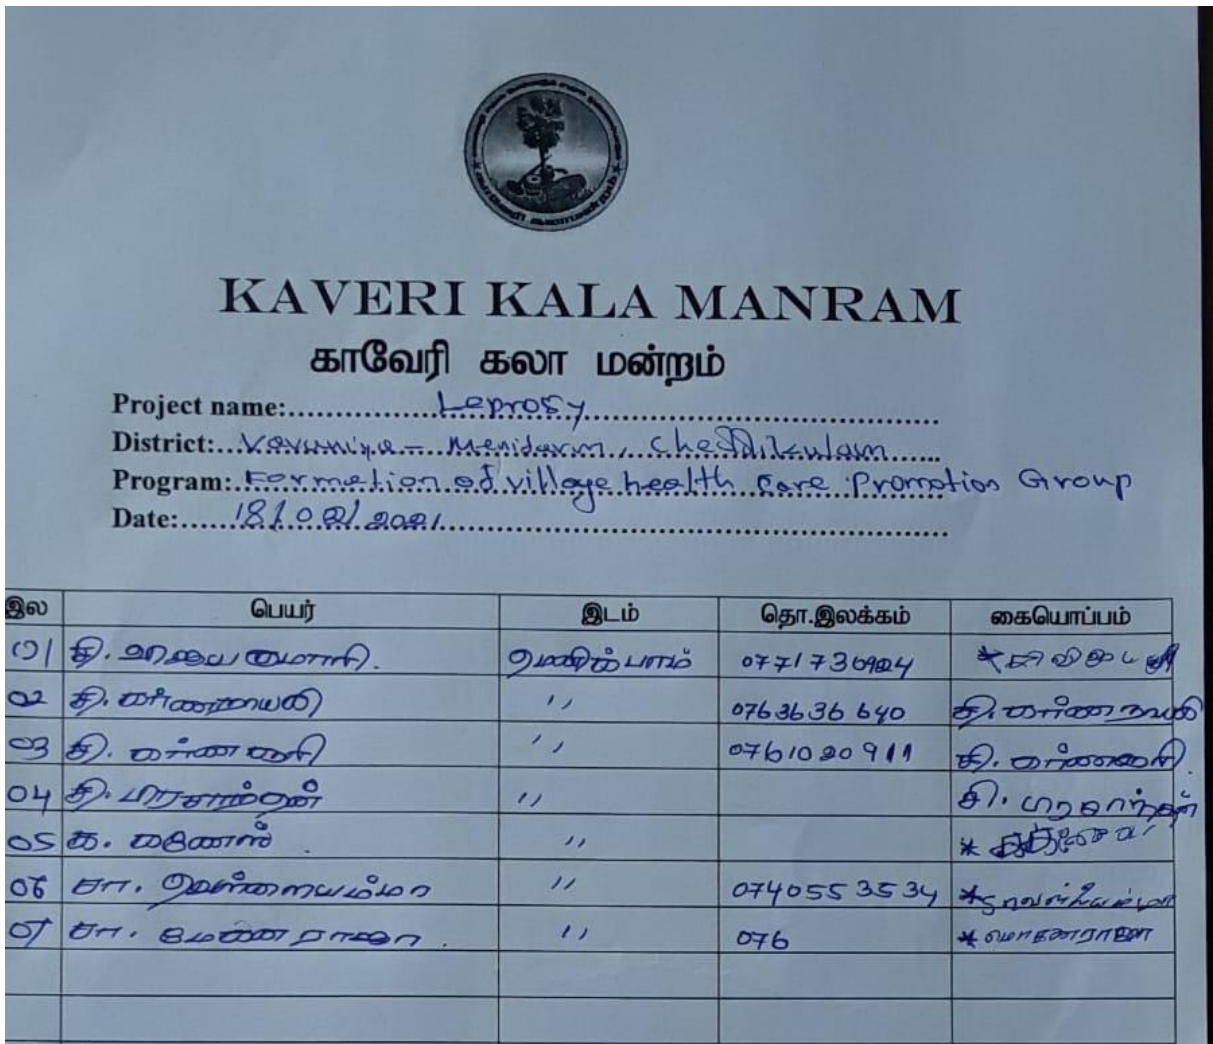 KAVERI KALA MANRAM
காவேரி கலா மன்றம்
Project name:................Leprosy................
District:...Vavuniya - Menidarm, Cheddikulam......
Program:..Formation of village health care Promotion Group
Date:......18/02/2021................
இல பெயர் இடம் தொ.இலக்கம் கையொப்பம்
01 சி. 0771736924
02 சி. '' 0763636640 சி.
03 சி. '' 0761020911 சி.
04 சி. பிரசாந்தன் '' சி. பிரசாந்தன்
05 க. கணேஸ் ''
06 சா. வெள்ளையம்மா '' 0740553534
07 சா. மோகனராஜா '' 076 * மோகனராஜா